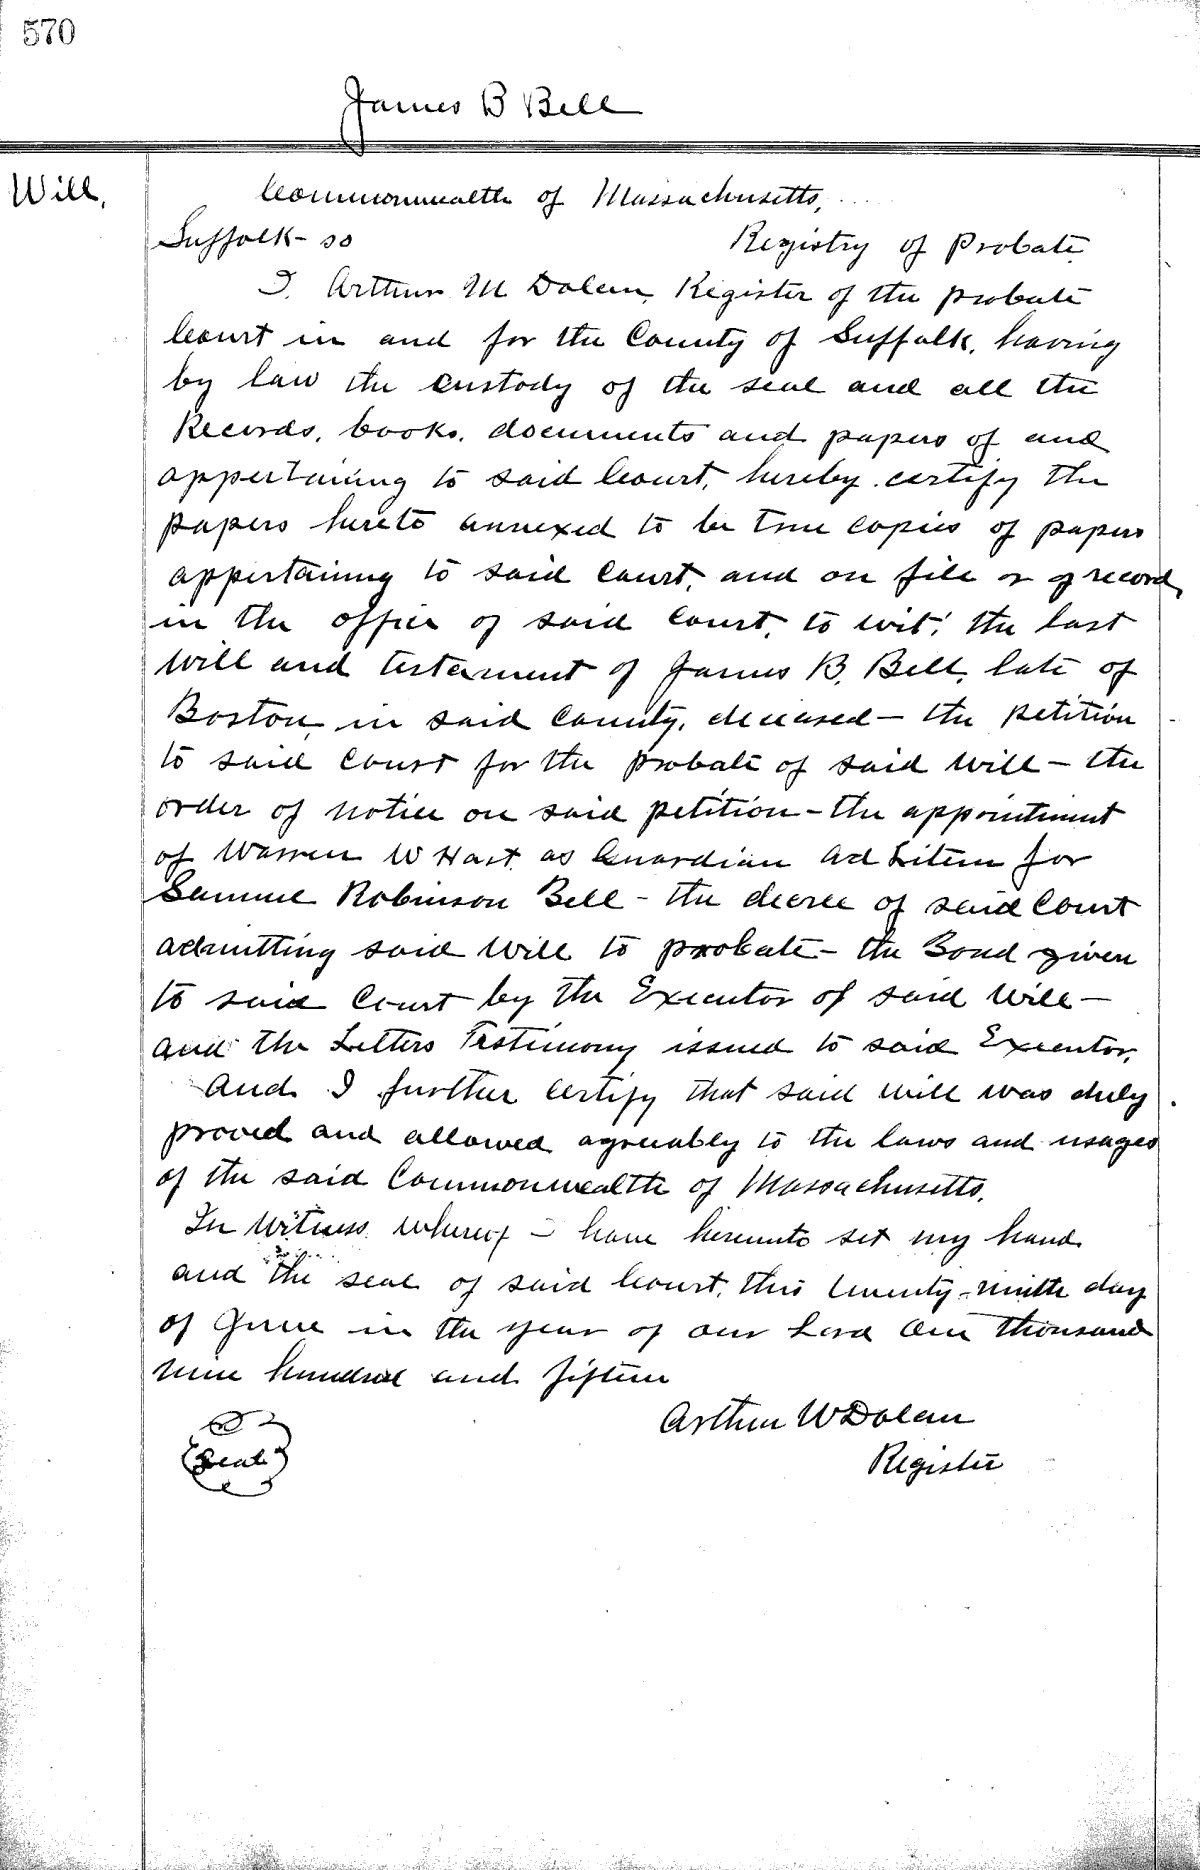 570
James B Bell
Will,
Commonwealth of Massachusetts,
Suffolk - ss Registry of Probate
I, Arthur M Dolan, Register of the probate
Court in and for the County of Suffolk, having
by law the custody of the seal and all the
Records, books, documents and papers of and
appertaining to said Court, hereby certify the
papers hereto annexed to be true copies of papers
appertaining to said Court, and on file or of record
in the office of said Court, to wit: the last
will and testament of James B. Bell, late of
Boston, in said County, deceased - the petition
to said Court for the probate of said will - the
order of notice on said petition - the appointment
of Warren W Hart as Guardian ad Litem for
Samuel Robinson Bell - the decree of said Court
admitting said will to probate - the Bond given
to said Court by the Executor of said will -
and the Letters Testimony issued to said Executor.
And I further certify that said will was duly
proved and allowed agreeably to the laws and usages
of the said Commonwealth of Massachusetts.
In Witness whereof I have hereunto set my hand
and the seal of said Court, this twenty-ninth day
of June in the year of our Lord One thousand
nine hundred and fifteen
Arthur W Dolan
Register
Seal